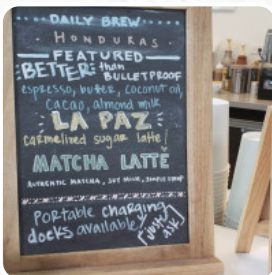 DAILY BREW
HONDURAS
FEATURED
BETTER than
BULLETPROOF
espresso, butter, coconut oil,
cacao, almond milk
LA PAZ
carmelized sugar latte
MATCHA LATTE
AUTHENTIC MATCHA, SOY MILK, SIMPLE SYRUP
Portable charging
docks available
[just
ask]